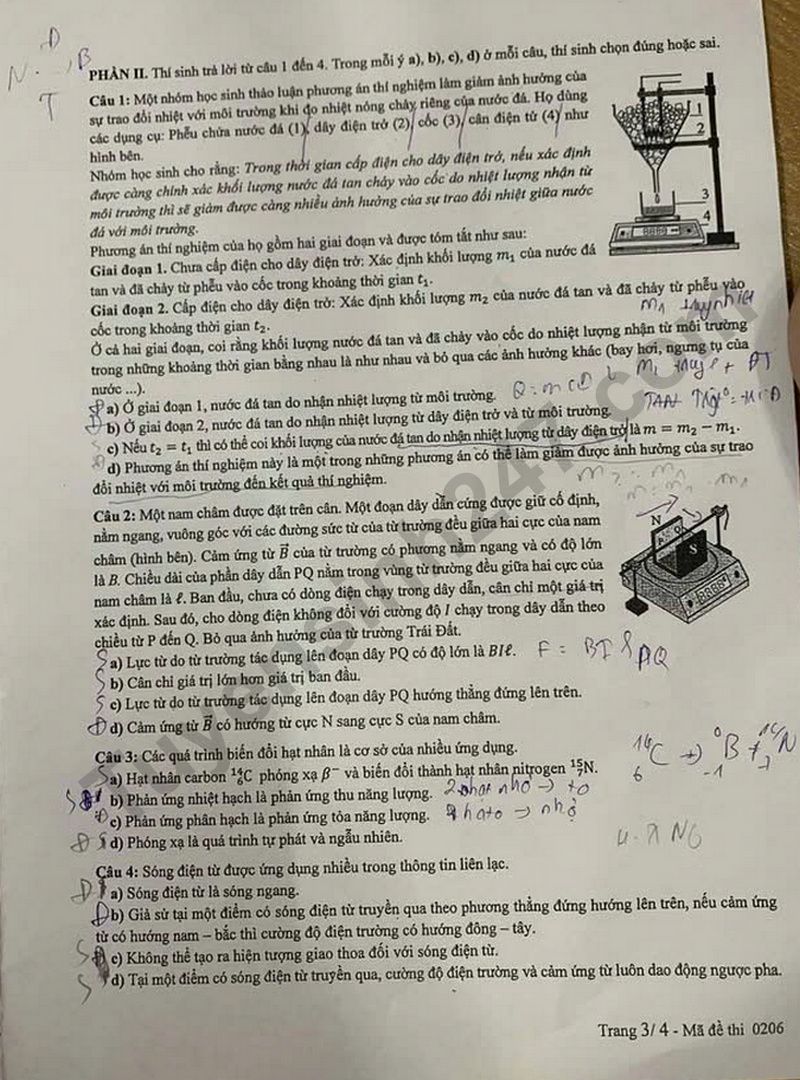 PHẦN II. Thí sinh trả lời từ câu 1 đến 4. Trong mỗi ý a), b), c), d) ở mỗi câu, thí sinh chọn đúng hoặc sai.
Câu 1: Một nhóm học sinh thảo luận phương án thí nghiệm làm giảm ảnh hưởng của
sự trao đổi nhiệt với môi trường khi đo nhiệt nóng chảy riêng của nước đá. Họ dùng
các dụng cụ: Phễu chứa nước đá (1), dây điện trở (2), cốc (3), cân điện tử (4) như
hình bên.
Nhóm học sinh cho rằng: Trong thời gian cấp điện cho dây điện trở, nếu xác định
được càng chính xác khối lượng nước đá tan chảy vào cốc do nhiệt lượng nhận từ
môi trường thì sẽ giảm được càng nhiều ảnh hưởng của sự trao đổi nhiệt giữa nước
đá với môi trường.
Phương án thí nghiệm của họ gồm hai giai đoạn và được tóm tắt như sau:
Giai đoạn 1. Chưa cấp điện cho dây điện trở: Xác định khối lượng m₁ của nước đá
tan và đã chảy từ phễu vào cốc trong khoảng thời gian t₁.
Giai đoạn 2. Cấp điện cho dây điện trở: Xác định khối lượng m₂ của nước đá tan và đã chảy từ phễu vào
cốc trong khoảng thời gian t₂.
Ở cả hai giai đoạn, coi rằng khối lượng nước đá tan và đã chảy vào cốc do nhiệt lượng nhận từ môi trường
trong những khoảng thời gian bằng nhau là như nhau và bỏ qua các ảnh hưởng khác (bay hơi, ngưng tụ của
nước ...).
a) Ở giai đoạn 1, nước đá tan do nhận nhiệt lượng từ môi trường.
b) Ở giai đoạn 2, nước đá tan do nhận nhiệt lượng từ dây điện trở và từ môi trường.
c) Nếu t₂ = t₁ thì có thể coi khối lượng của nước đá tan do nhận nhiệt lượng từ dây điện trở là m = m₂ − m₁.
d) Phương án thí nghiệm này là một trong những phương án có thể làm giảm được ảnh hưởng của sự trao
đổi nhiệt với môi trường đến kết quả thí nghiệm.
1
2
3
4
Câu 2: Một nam châm được đặt trên cân. Một đoạn dây dẫn cứng được giữ cố định,
nằm ngang, vuông góc với các đường sức từ của từ trường đều giữa hai cực của nam
châm (hình bên). Cảm ứng từ B⃗ của từ trường có phương nằm ngang và có độ lớn
là B. Chiều dài của phần dây dẫn PQ nằm trong vùng từ trường đều giữa hai cực của
nam châm là ℓ. Ban đầu, chưa có dòng điện chạy trong dây dẫn, cân chỉ một giá trị
xác định. Sau đó, cho dòng điện không đổi với cường độ I chạy trong dây dẫn theo
chiều từ P đến Q. Bỏ qua ảnh hưởng của từ trường Trái Đất.
N
S
a) Lực từ do từ trường tác dụng lên đoạn dây PQ có độ lớn là BIℓ.
F = BIl PQ
b) Cân chỉ giá trị lớn hơn giá trị ban đầu.
c) Lực từ do từ trường tác dụng lên đoạn dây PQ hướng thẳng đứng lên trên.
d) Cảm ứng từ B⃗ có hướng từ cực N sang cực S của nam châm.
Câu 3: Các quá trình biến đổi hạt nhân là cơ sở của nhiều ứng dụng.
a) Hạt nhân carbon ¹⁴₆C phóng xạ β⁻ và biến đổi thành hạt nhân nitrogen ¹⁵₇N.
b) Phản ứng nhiệt hạch là phản ứng thu năng lượng.
c) Phản ứng phân hạch là phản ứng tỏa năng lượng.
d) Phóng xạ là quá trình tự phát và ngẫu nhiên.
Câu 4: Sóng điện từ được ứng dụng nhiều trong thông tin liên lạc.
a) Sóng điện từ là sóng ngang.
b) Giả sử tại một điểm có sóng điện từ truyền qua theo phương thẳng đứng hướng lên trên, nếu cảm ứng
từ có hướng nam – bắc thì cường độ điện trường có hướng đông – tây.
c) Không thể tạo ra hiện tượng giao thoa đối với sóng điện từ.
d) Tại một điểm có sóng điện từ truyền qua, cường độ điện trường và cảm ứng từ luôn dao động ngược pha.
Trang 3/ 4 - Mã đề thi 0206